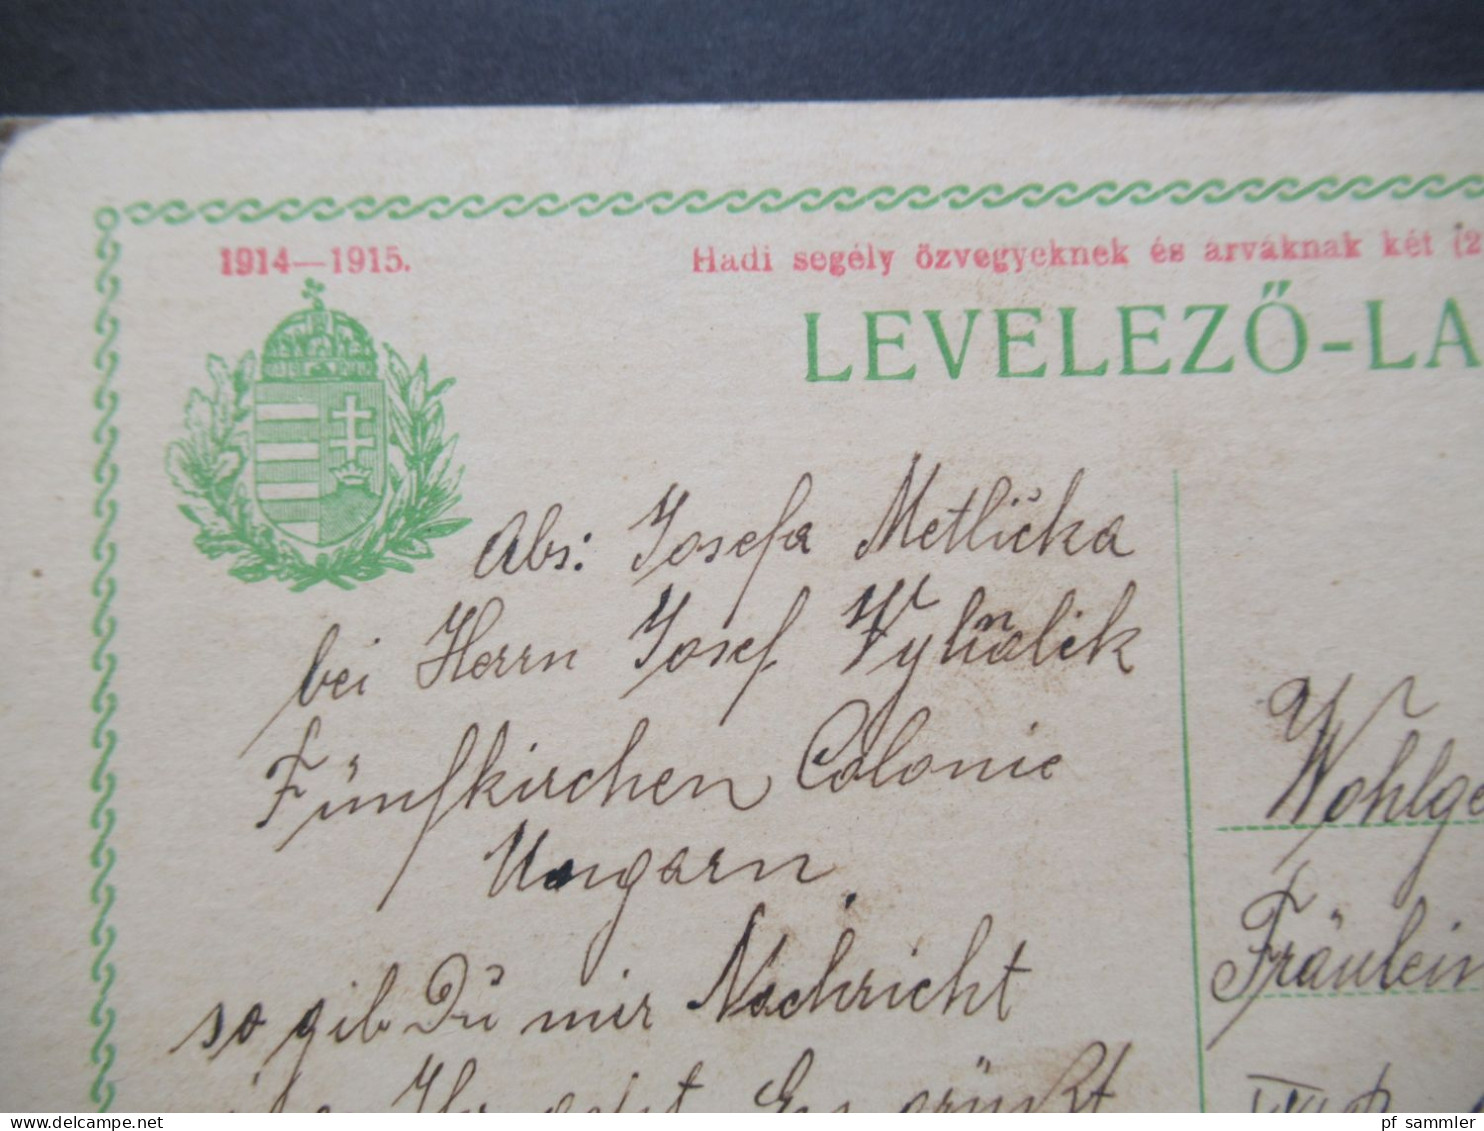 1914—1915.
Hadi segély özvegyeknek és árváknak két (2
LEVELEZŐ-LA
Abs: Josefa Metlička
bei Herrn Josef
Fünfkirchen Colonie
Ungarn
so gib Du mir Nachricht
Es grüßt
Wohlge
Fräulein
pf sammler